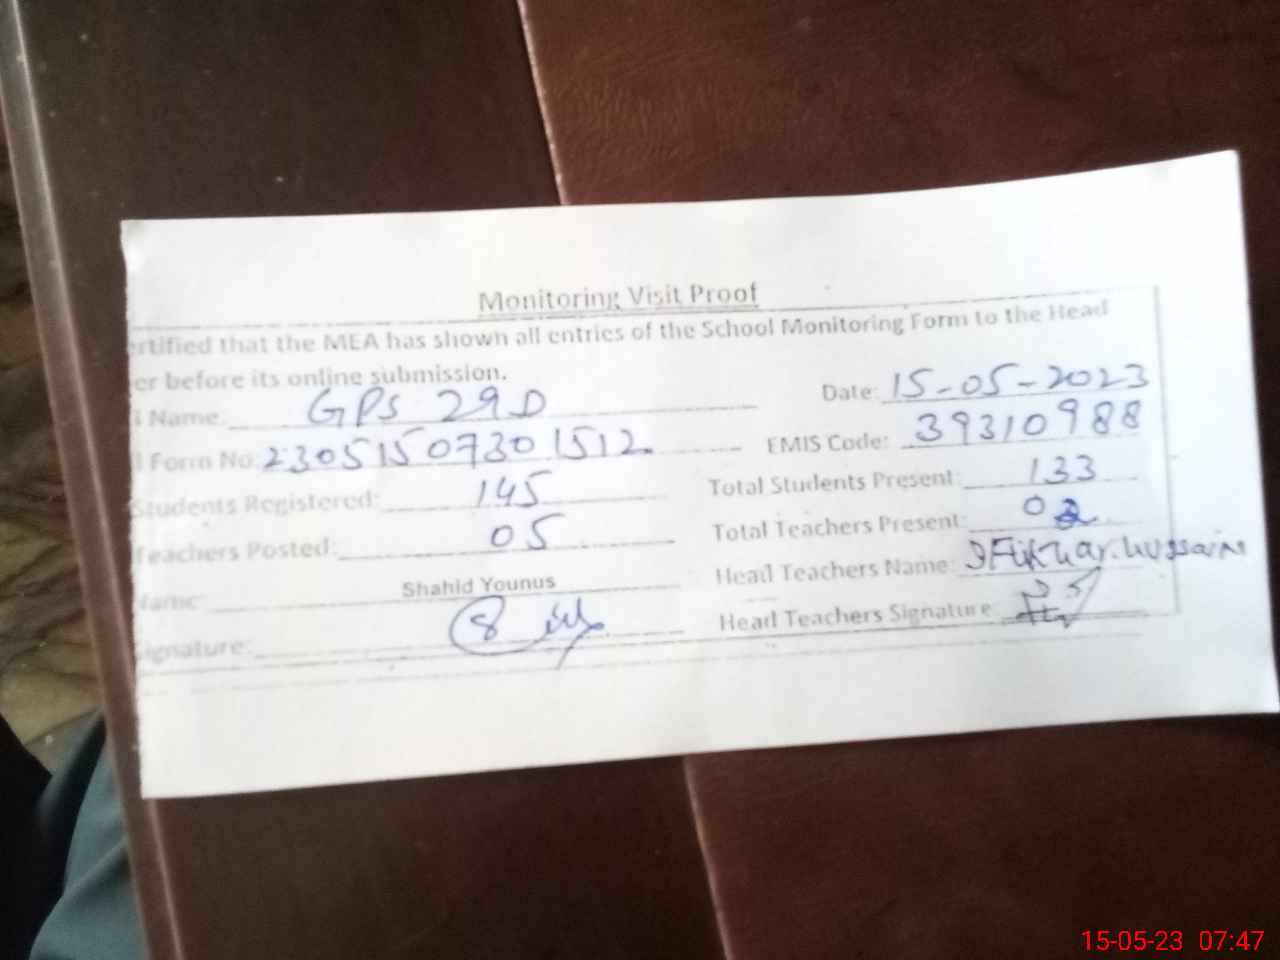 Monitoring Visit Proof
ertified that the MEA has shown all entries of the School Monitoring Form to the Head
er before its online submission.
l Name: GPS 29D Date: 15-05-2023
l Form No: 23051507301512 EMIS Code: 39310988
Students Registered: 145 Total Students Present: 133
Teachers Posted: 05 Total Teachers Present: 02
Name: Shahid Younus Head Teachers Name: Iftikhar.hussain
ignature: Head Teachers Signature:
15-05-23 07:47